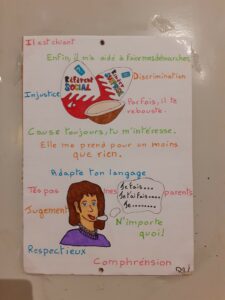 Il est chiant
Enfin, il m'a aidé à faire mes démarches
Référent SOCIAL
Discrimination
Injustice
Parfois, il te rebouste.
Cause toujours, tu m'intéresse.
Elle me prend pour un moins
que rien.
Adapte ton langage
T'es pas mes parents
Je fais...
Jugement
N'importe
quoi!
Respectieux
Comphrension